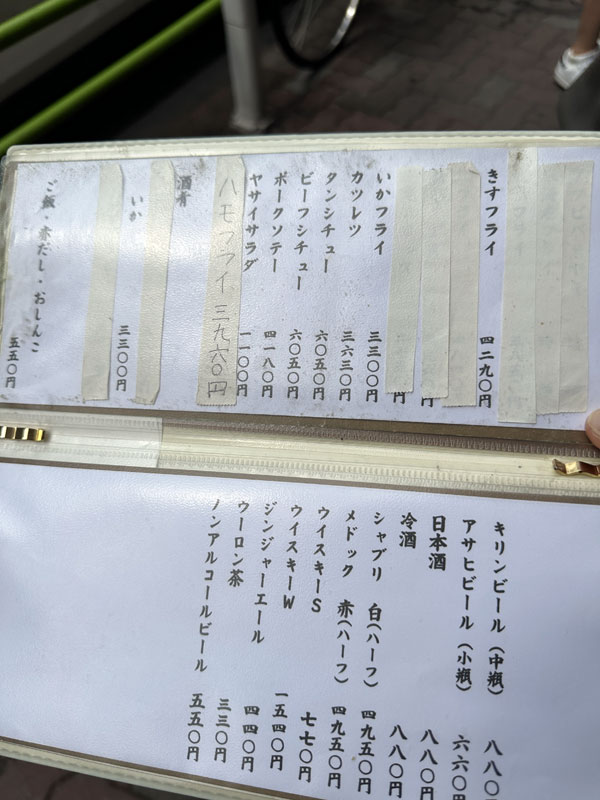 きすフライ 四二九〇円
円
円
いかフライ 三三〇〇円
カツレツ 三六三〇円
タンシチュー 六〇五〇円
ビーフシチュー 六〇五〇円
ポークソテー 四一八〇円
ヤサイサラダ 一一〇〇円
ハモフライ 三九六〇円
酒肴
いか 三三〇〇円
ご飯・赤だし・おしんこ 五五〇円
キリンビール(中瓶) 八八〇
アサヒビール(小瓶) 六六〇円
日本酒 八八〇円
冷酒 八八〇円
シャブリ 白(ハーフ) 四九五〇円
メドック 赤(ハーフ) 四九五〇円
ウイスキーS 七七〇円
ウイスキーW 一五四〇円
ジンジャーエール 四四〇円
ウーロン茶 三三〇円
ノンアルコールビール 五五〇円